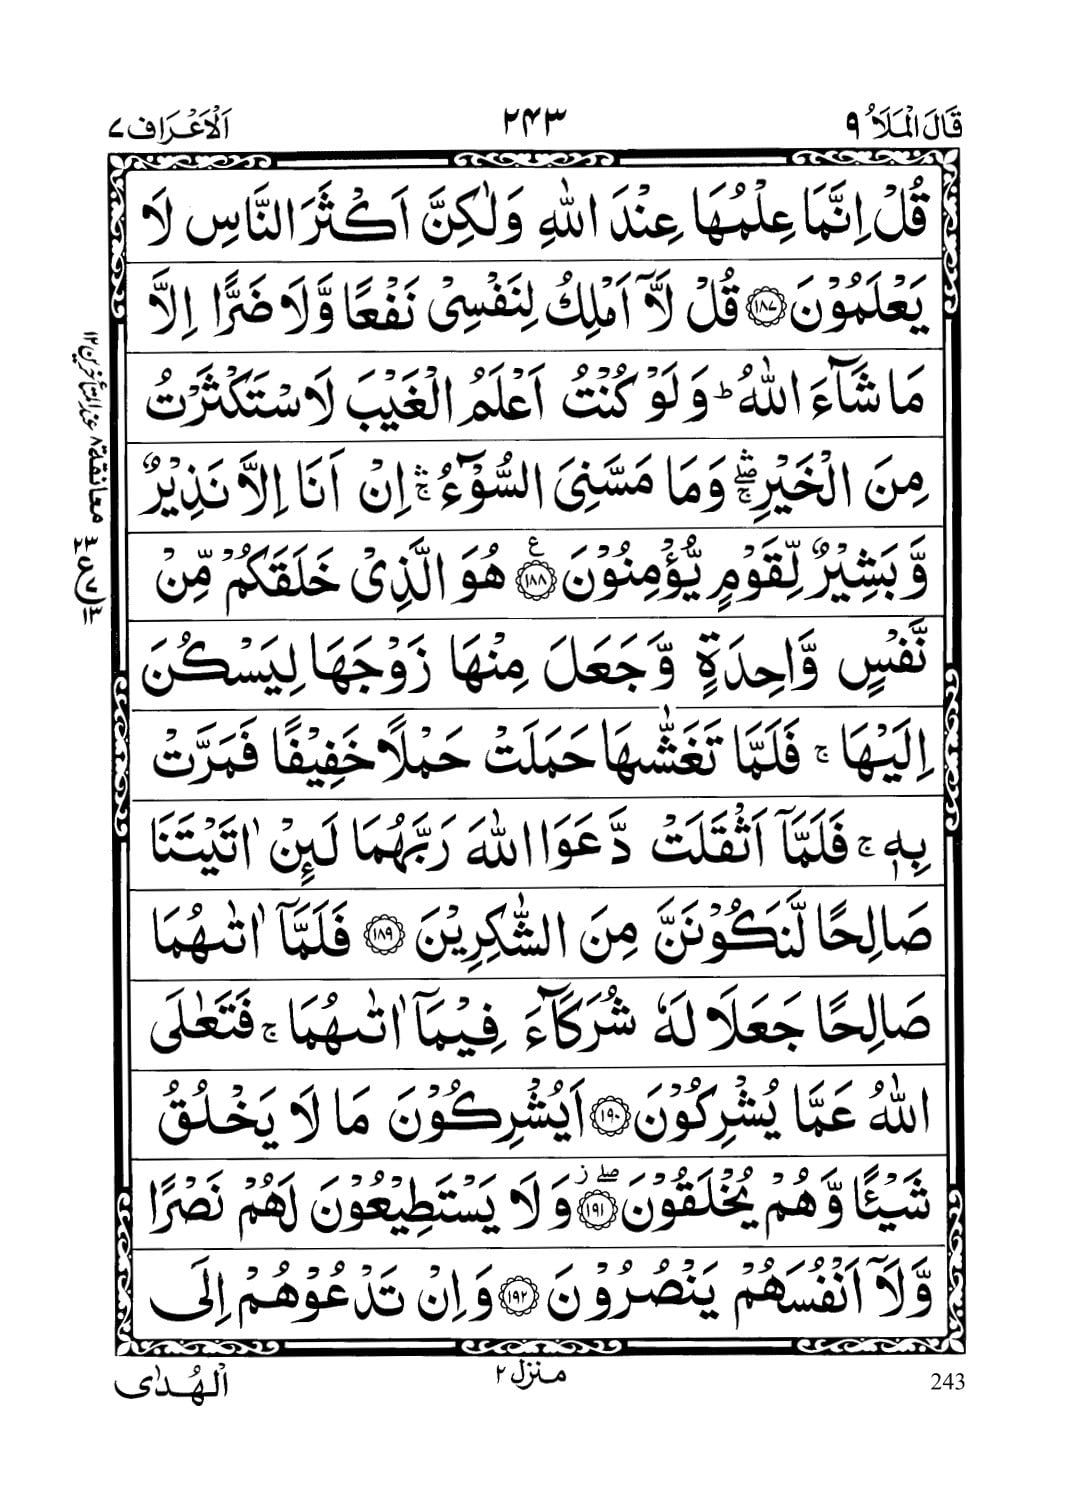 قَالَ الْمَلَاُ ۹
۲۴۳
اَلْاَعْرَاف ۷
قُلْ اِنَّمَا عِلْمُهَا عِنْدَ اللّٰهِ وَلٰكِنَّ اَكْثَرَ النَّاسِ لَا
يَعْلَمُوْنَ ۝۱۸۷ قُلْ لَّاۤ اَمْلِكُ لِنَفْسِىْ نَفْعًا وَّلَا ضَرًّا اِلَّا
مَا شَآءَ اللّٰهُ ؕ وَلَوْ كُنْتُ اَعْلَمُ الْغَيْبَ لَاسْتَكْثَرْتُ
مِنَ الْخَيْرِ ۛۖۚ وَمَا مَسَّنِىَ السُّوْٓءُ ۛۚ اِنْ اَنَا اِلَّا نَذِيْرٌ
وَّبَشِيْرٌ لِّقَوْمٍ يُّؤْمِنُوْنَ ۝۱۸۸ ع هُوَ الَّذِىْ خَلَقَكُمْ مِّنْ
نَّفْسٍ وَّاحِدَةٍ وَّجَعَلَ مِنْهَا زَوْجَهَا لِيَسْكُنَ
اِلَيْهَا ۚ فَلَمَّا تَغَشّٰىهَا حَمَلَتْ حَمْلًا خَفِيْفًا فَمَرَّتْ
بِهٖ ۚ فَلَمَّاۤ اَثْقَلَتْ دَّعَوَا اللّٰهَ رَبَّهُمَا لَىِٕنْ اٰتَيْتَنَا
صَالِحًا لَّنَكُوْنَنَّ مِنَ الشّٰكِرِيْنَ ۝۱۸۹ فَلَمَّاۤ اٰتٰىهُمَا
صَالِحًا جَعَلَا لَهٗ شُرَكَآءَ فِيْمَاۤ اٰتٰىهُمَا ۚ فَتَعٰلَى
اللّٰهُ عَمَّا يُشْرِكُوْنَ ۝۱۹۰ اَيُشْرِكُوْنَ مَا لَا يَخْلُقُ
شَيْـًٔا وَّهُمْ يُخْلَقُوْنَ ۝۱۹۱ ۖز وَلَا يَسْتَطِيْعُوْنَ لَهُمْ نَصْرًا
وَّلَاۤ اَنْفُسَهُمْ يَنْصُرُوْنَ ۝۱۹۲ وَاِنْ تَدْعُوْهُمْ اِلَى
معانقة ۸ عند المتأخرين ۱۲
الْهُدٰى
منزل ۲
243